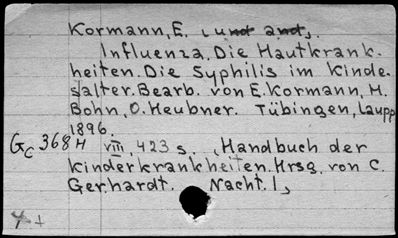 Kormann, E. (und and).
Influenza. Die Hautkrank-
heiten. Die Syphilis im Kinde-
salter. Bearb. von E. Kormann, H.
Bohn, O. Heubner. Tübingen, Laupp
1896.
Gc 368 H VIII, 423 s. (Handbuch der
Kinderkrankheiten. Hrsg. von C.
Gerhardt. Nacht. 1)